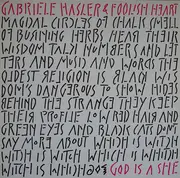 GABRIELE HASLER & FOOLISH HEART
MAGICAL CIRCLES OF CHALK SMELL
OF BURNING HERBS HEAR THEIR
WISDOM TALK NUMBERS AND LET
TERS AND MUSIC AND WORDS THE
OLDEST RELIGION IS BLACK WIS
DOMS DANGEROUS TO SHOW HIDES
BEHIND THE STRANGE THEY KEEP
THEIR PROFILE LOW RED HAIR AND
GREEN EYES AND BLACK CATS DOMS
SAY MORE ABOUT WHICH IS WITCH
WITCH IS WITCH WHICH IS WITCH
GOD IS A SHE